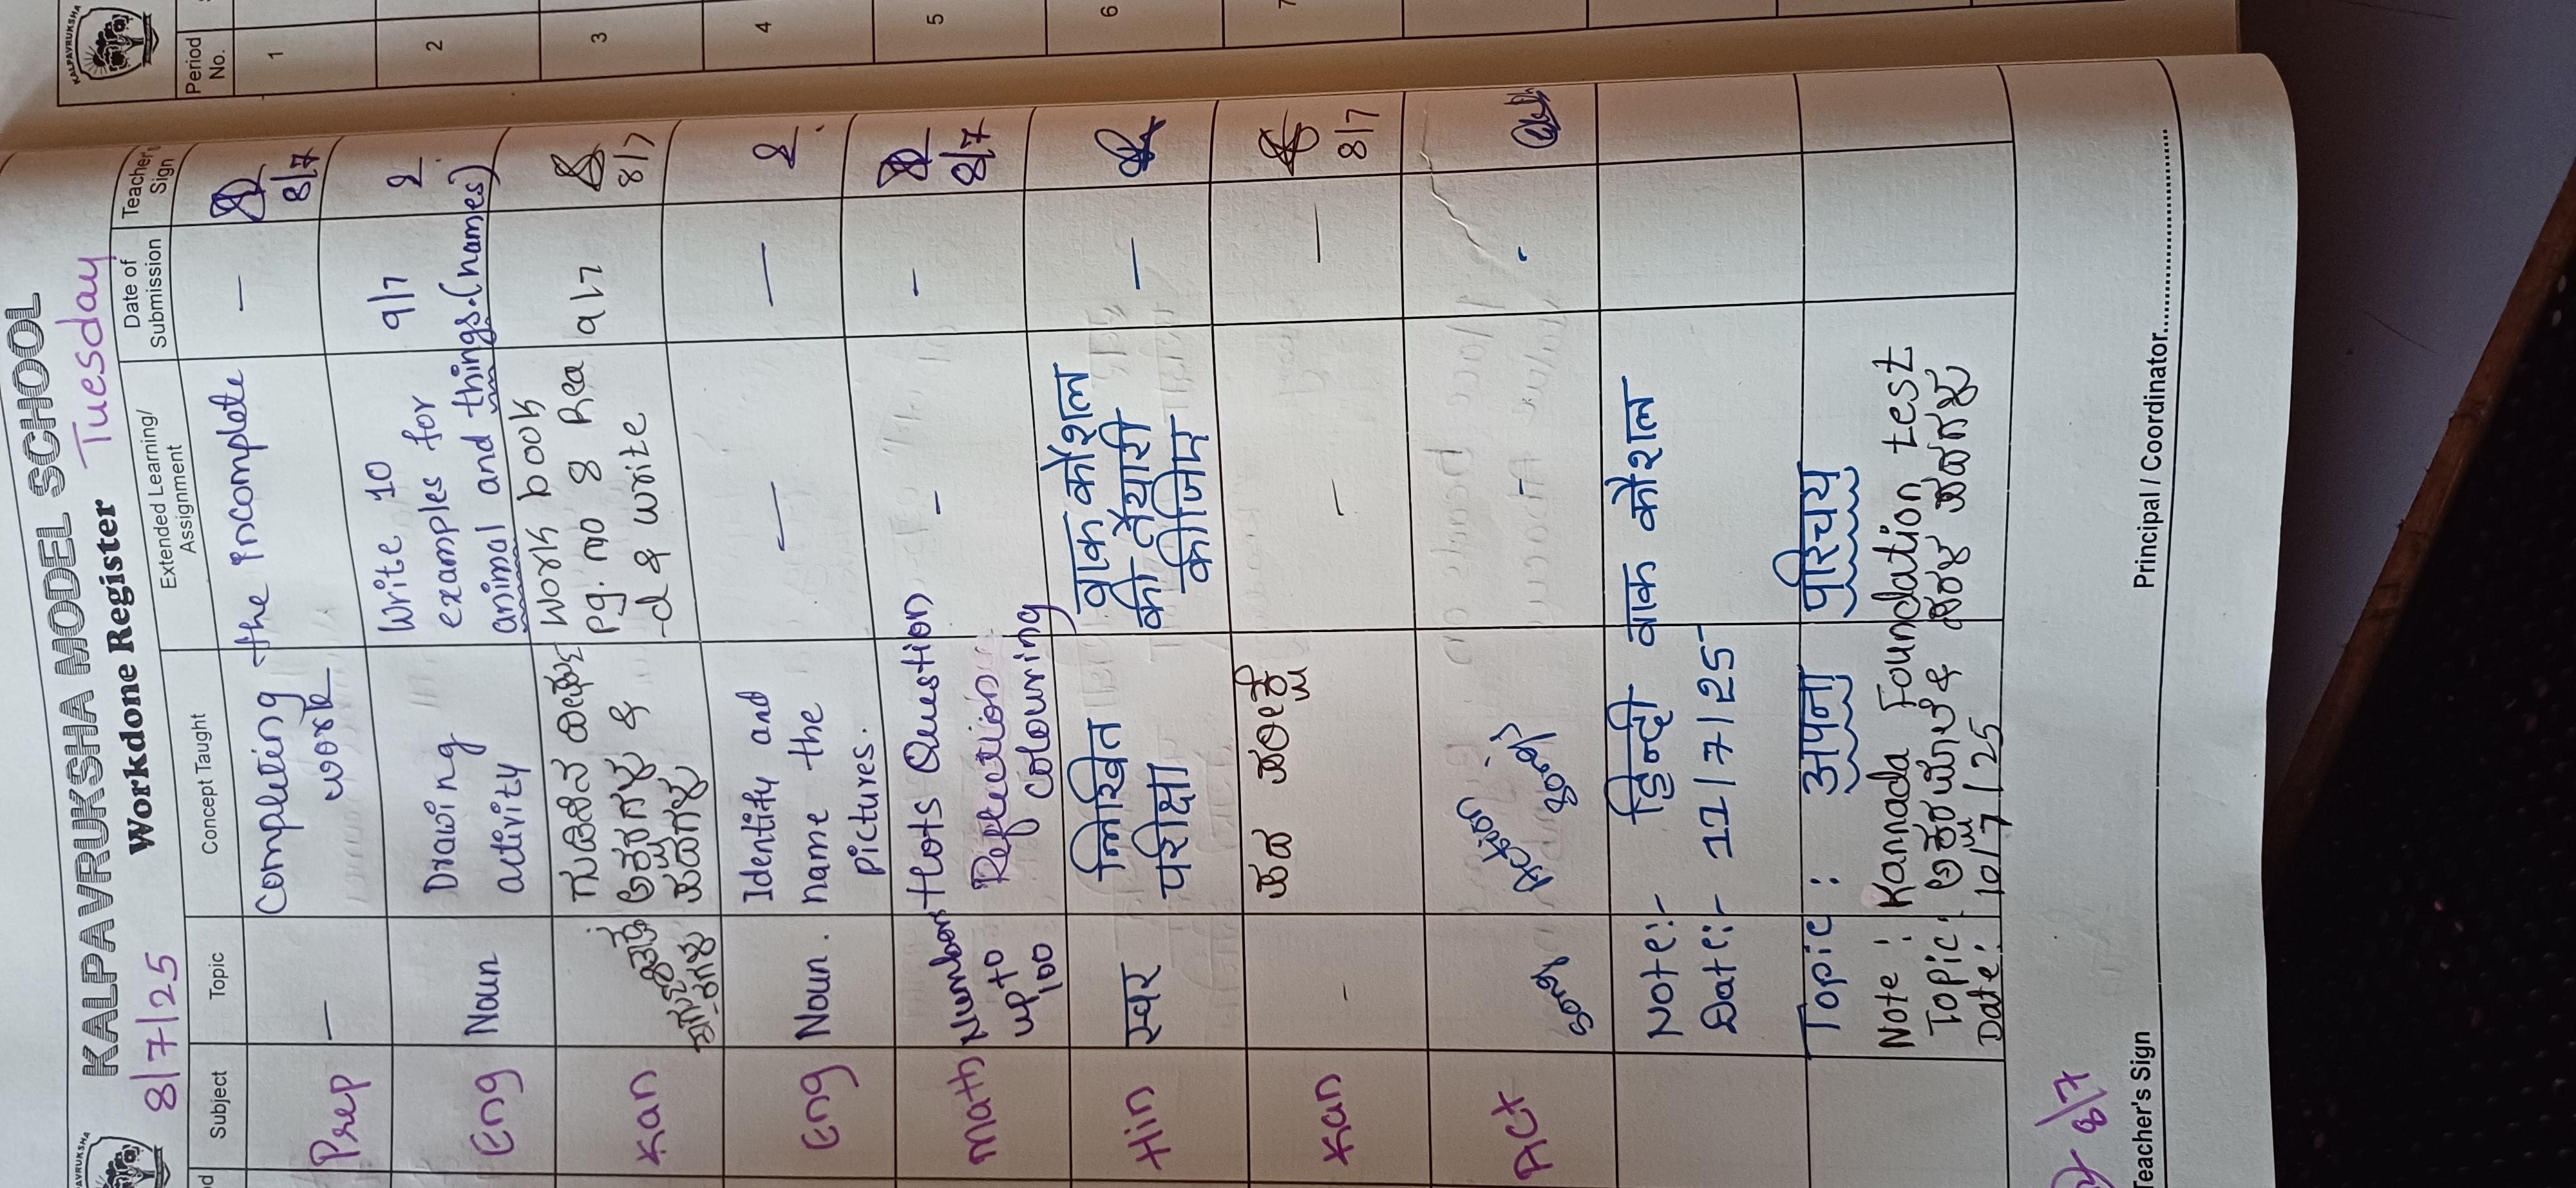 KALPAVRUKSHA MODEL SCHOOL
Workdone Register
8/7/25
Tuesday
Subject Topic Concept Taught Extended Learning/ Assignment Date of Submission Teacher Sign
Prep — Completing the incomplete work — 8/7
Eng Noun Drawing activity Write 10 examples for animal and things.(names) 9/7
Kan ಅಕ್ಷರಗಳು & ಪದಗಳು Work book Pg. no 8 Rea -d & write 9/7 8/7
Eng Noun. Identify and name the pictures. — —
Math Numbers upto 100 Hots Question Repetition colouring - — 8/7
Hin स्वर लिखित परीक्षा वाक कौशल की तैयारी कीजिए —
Kan - ಪದ ಪರೀಕ್ಷೆ — — 8/7
Act song Action song - -
Note:- हिन्दी वाक कौशल
Date:- 11/7/25
Topic : अपना परिचय
Note : Kannada Foundation test
Topic : ಅಕ್ಷರಮಾಲೆ & ಸರಳ ಪದಗಳು
Date : 10/7/25
8/7
Teacher's Sign
Principal / Coordinator
KALPAVRUKSHA
Period No.
1
2
3
4
5
6
7